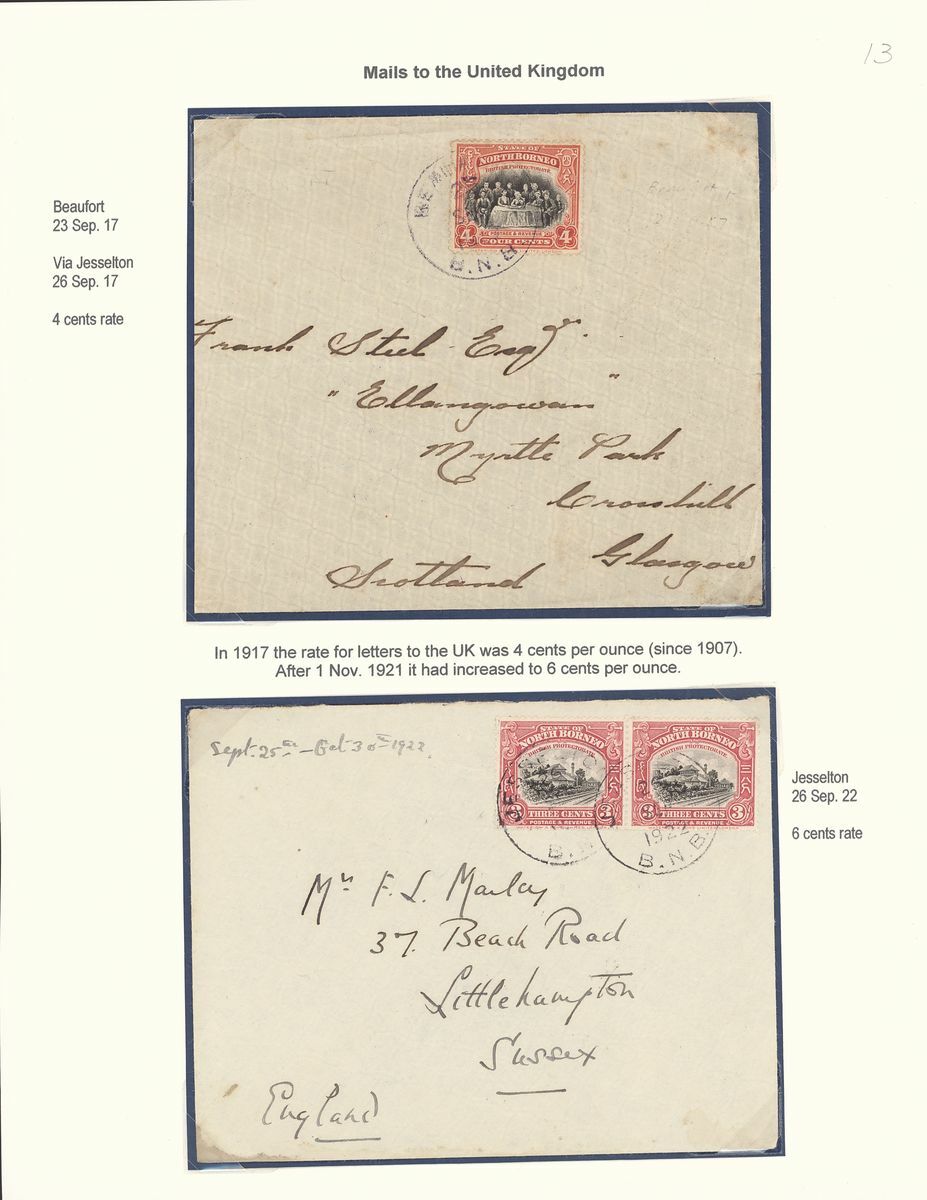 13
Mails to the United Kingdom
Beaufort
23 Sep. 17
Via Jesselton
26 Sep. 17
4 cents rate
STATE OF
NORTH BORNEO
BRITISH PROTECTORATE
4 POSTAGE & REVENUE 4
FOUR CENTS
B.N.B
Frank Steel Esqr
"Ellangowan"
Myrtle Park
Crosshill
Glasgow
Scotland
In 1917 the rate for letters to the UK was 4 cents per ounce (since 1907).
After 1 Nov. 1921 it had increased to 6 cents per ounce.
Sept. 25th - Oct 30th 1922
STATE OF
NORTH BORNEO
BRITISH PROTECTORATE
3 THREE CENTS 3
POSTAGE & REVENUE
STATE OF
NORTH BORNEO
BRITISH PROTECTORATE
3 THREE CENTS 3
POSTAGE & REVENUE
1922
B.N.B.
Jesselton
26 Sep. 22
6 cents rate
F. S.
37. Beach Road
Littlehampton
Sussex
England